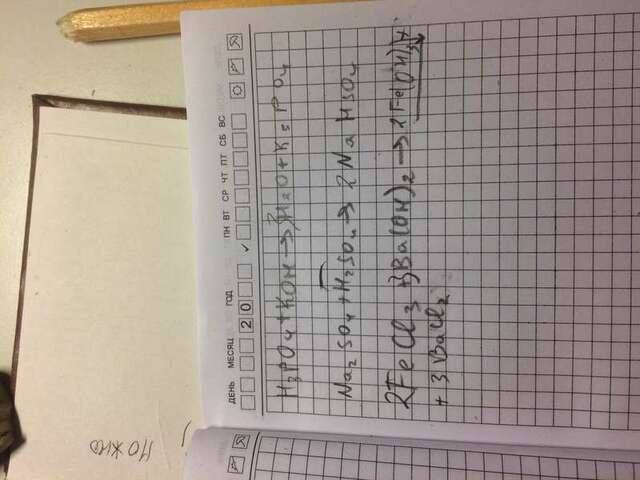 можно
ДЕНЬ МЕСЯЦ ГОД ПН ВТ СР ЧТ ПТ СБ ВС
2 0
H₃PO₄ + KOH → 3H₂O + K₃PO₄
Na₂SO₄ + H₂SO₄ → 2NaHSO₄
2FeCl₃ + 3Ba(OH)₂ → 2Fe(OH)₃↓
+ 3BaCl₂